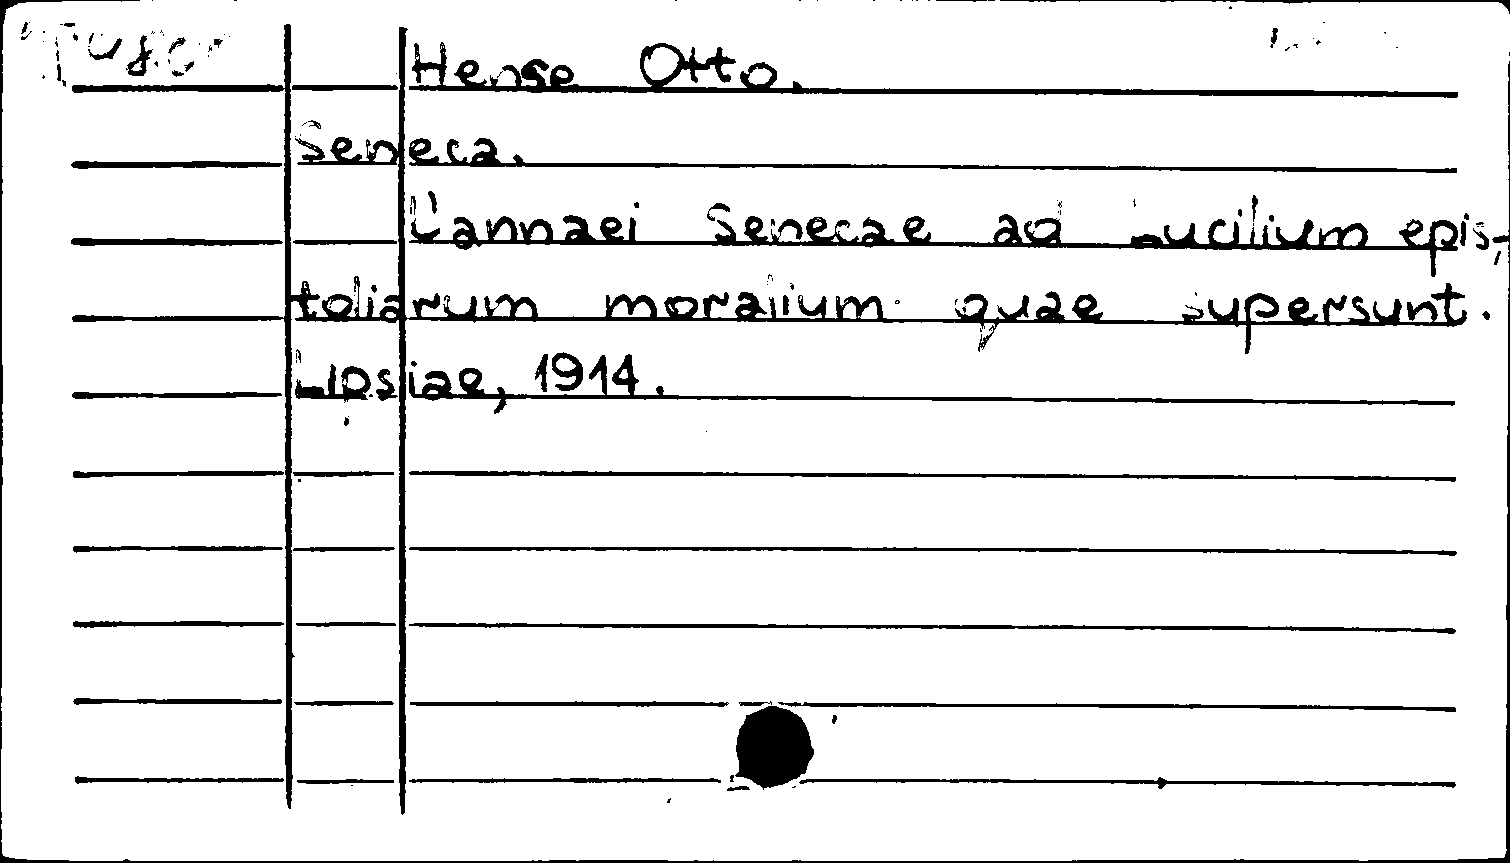 Hense Otto.
Seneca.
L'annaei Senecae ad Lucilium epis-
toliarum moralium quae supersunt.
Lipsiae, 1914.